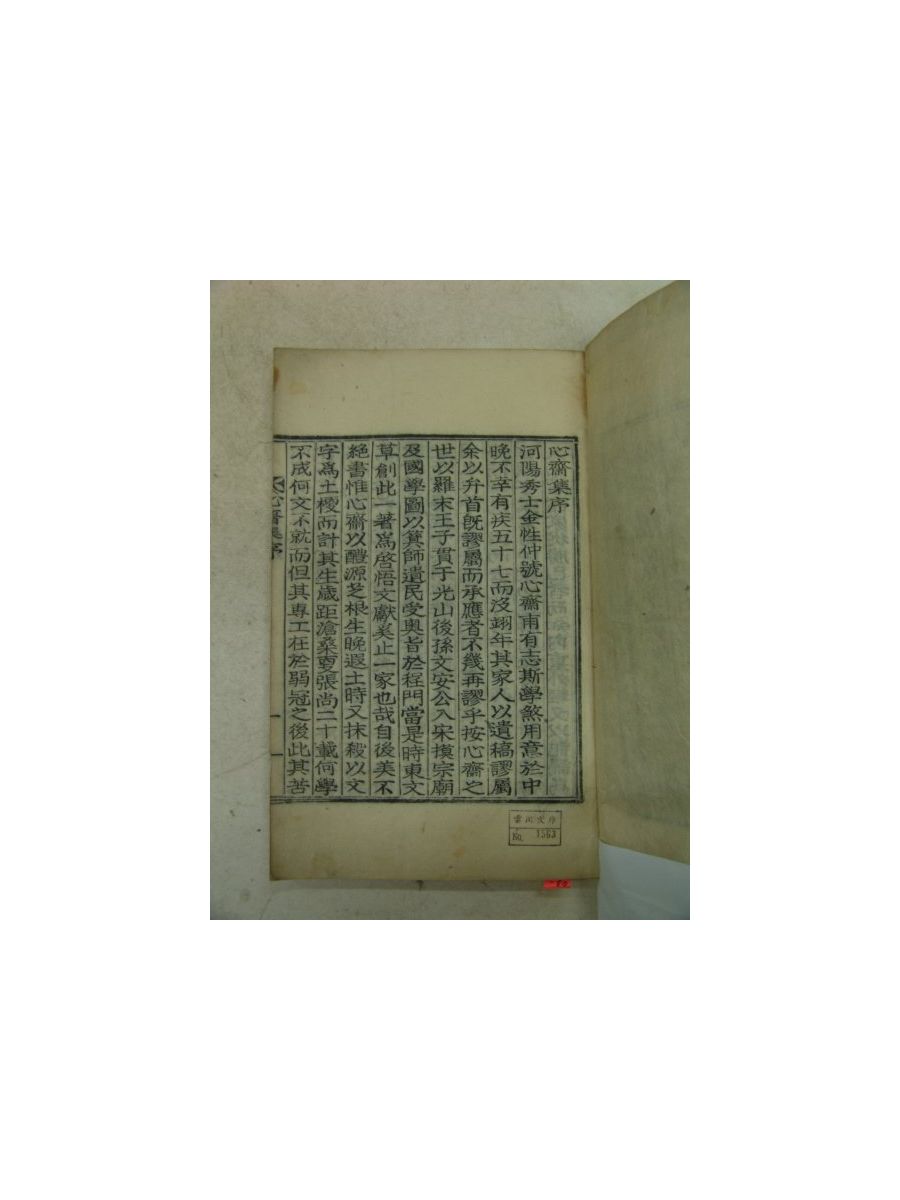 心齋集序
河陽秀士金性仲號心齋甫有志斯學煞用意於中
晩不幸有疾五十七而沒翊年其家人以遺稿謬屬
余以弁首旣謬屬而承應者不幾再謬乎按心齋之
世以羅末王子貫于光山後孫文安公入宋摸宗廟
及國學圖以箕師遺民受奥旨於程門當是時東文
草創此一著爲啓悟文獻奚止一家也哉自後美不
絶書惟心齋以醴源芝根生晩遐土時又抹殺以文
字爲土稷而計其生歲距滄桑戛張尚二十載何學
不成何文不就而但其專工在於弱冠之後此其苦
心齋集序
一
No. 1563